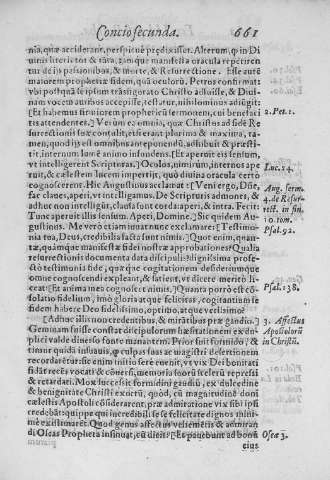 Concio secunda. 661
nia, quæ acciderant, perspicuè prędixisset. Alterum, q̃ in Di
uinis literis tot & tàta, tàmque manifesta oracula reperiren
tur de ipsius passionibus, & morte, & Resurrectione. Esse aurẽ
maiorem prophetiæ fidem, quã oculorum. Petrus confirmat:
vbi postquã se ipsum trãsfigurato Christo adfuisse, & Diui-
nam vocem auribus accepisse, testatur, nihilominus adiũgit:
[Et habemus firmiorem propheticũ sermonem, cui benefaci
tis attendentes.] Verùm eo omisso, quæ Christus ad fidẽ Re
surrectionis suæ contulit, etsi erant plurima & maxima, ta-
men, quod ijs est omnibus anteponendũ, adhibuit & præsti
tit. internum lumẽ animo infundens. [Et aperuit eis sensum,
vt intelligerent Scripturas.] Oculos, nimirum, internos ape
ruit, & cælestem lucem impertijt, quò diuina oracula certò
cognoscerent. Hîc Augustinus acclamat: [Veni ergo, Dñe,
fac claues, aperi, vt intelligamus. De Scripturis admones, &
adhuc non intelligitur, clausa sunt corda: aperi, & intra. Fecit:
Tunc aperuit illis sensum. Aperi, Domine.] Sic quidem Au
gustinus. Me verò etiam iuuat nunc exclamare: [Testimo-
nia tua, Deus, credibilia facta sunt nimis.] Quot enim, quan-
tæ, quàmque manifestæ fidei nostræ approbationes? Qualia
resurrectionis documenta data discipulis? dignissima profe-
stò testimonia fide, quæque cogitationem desideriumque
omne cognoscendi expleant, & satient, vt dicere meritò li-
ceat [Et anima mea cognoscet nimis.] Quanta porrò est cõ-
solatio fidelium, imò gloria atque felicitas, cogitantium se
fidem habere Deo fidelissimo, optimo, atque verissimo?
[Adhuc illis non credentibus, & mirãtibus præ gaudio.]
Geminam fuisse constat discipulorum hæsitationem ex du-
plici valde diuerso fonte manantem. Prior fuit formido, &
timor quidã inusitatus, q̃ culpas suas ac magistri desertionem
recordarẽtur: se enim initio sere venit, vt vix Dei bonitati
fidãt recẽs vocati & conuersi, memoria suorũ scelerũ repressi
& retardati. Mox successit formidini gaudiũ, ex dulcedine
& benignitate Christi exortũ, quod, cũ magnitudinẽ donĩ
cælestis Apostoli cõsiderarent, præ admiratione vix sibi ipsi
credebãt: quippe qui incredibili se se felicitate dignos mini-
mè existimarẽt. Quod genus affectus vehemẽtis & admirãn
di Oseas Propheta insinuat, cũ dicit: [Et pauebunt ad bonũ
eius
2. Pet. 1.
Luc. 24.
Aug. serm.
4. de Resur-
rect. in fin.
10. tom.
Psal. 92.
Psal. 138.
3. Affectus
Apostolorũ
in Christũ.
Oseæ 3.